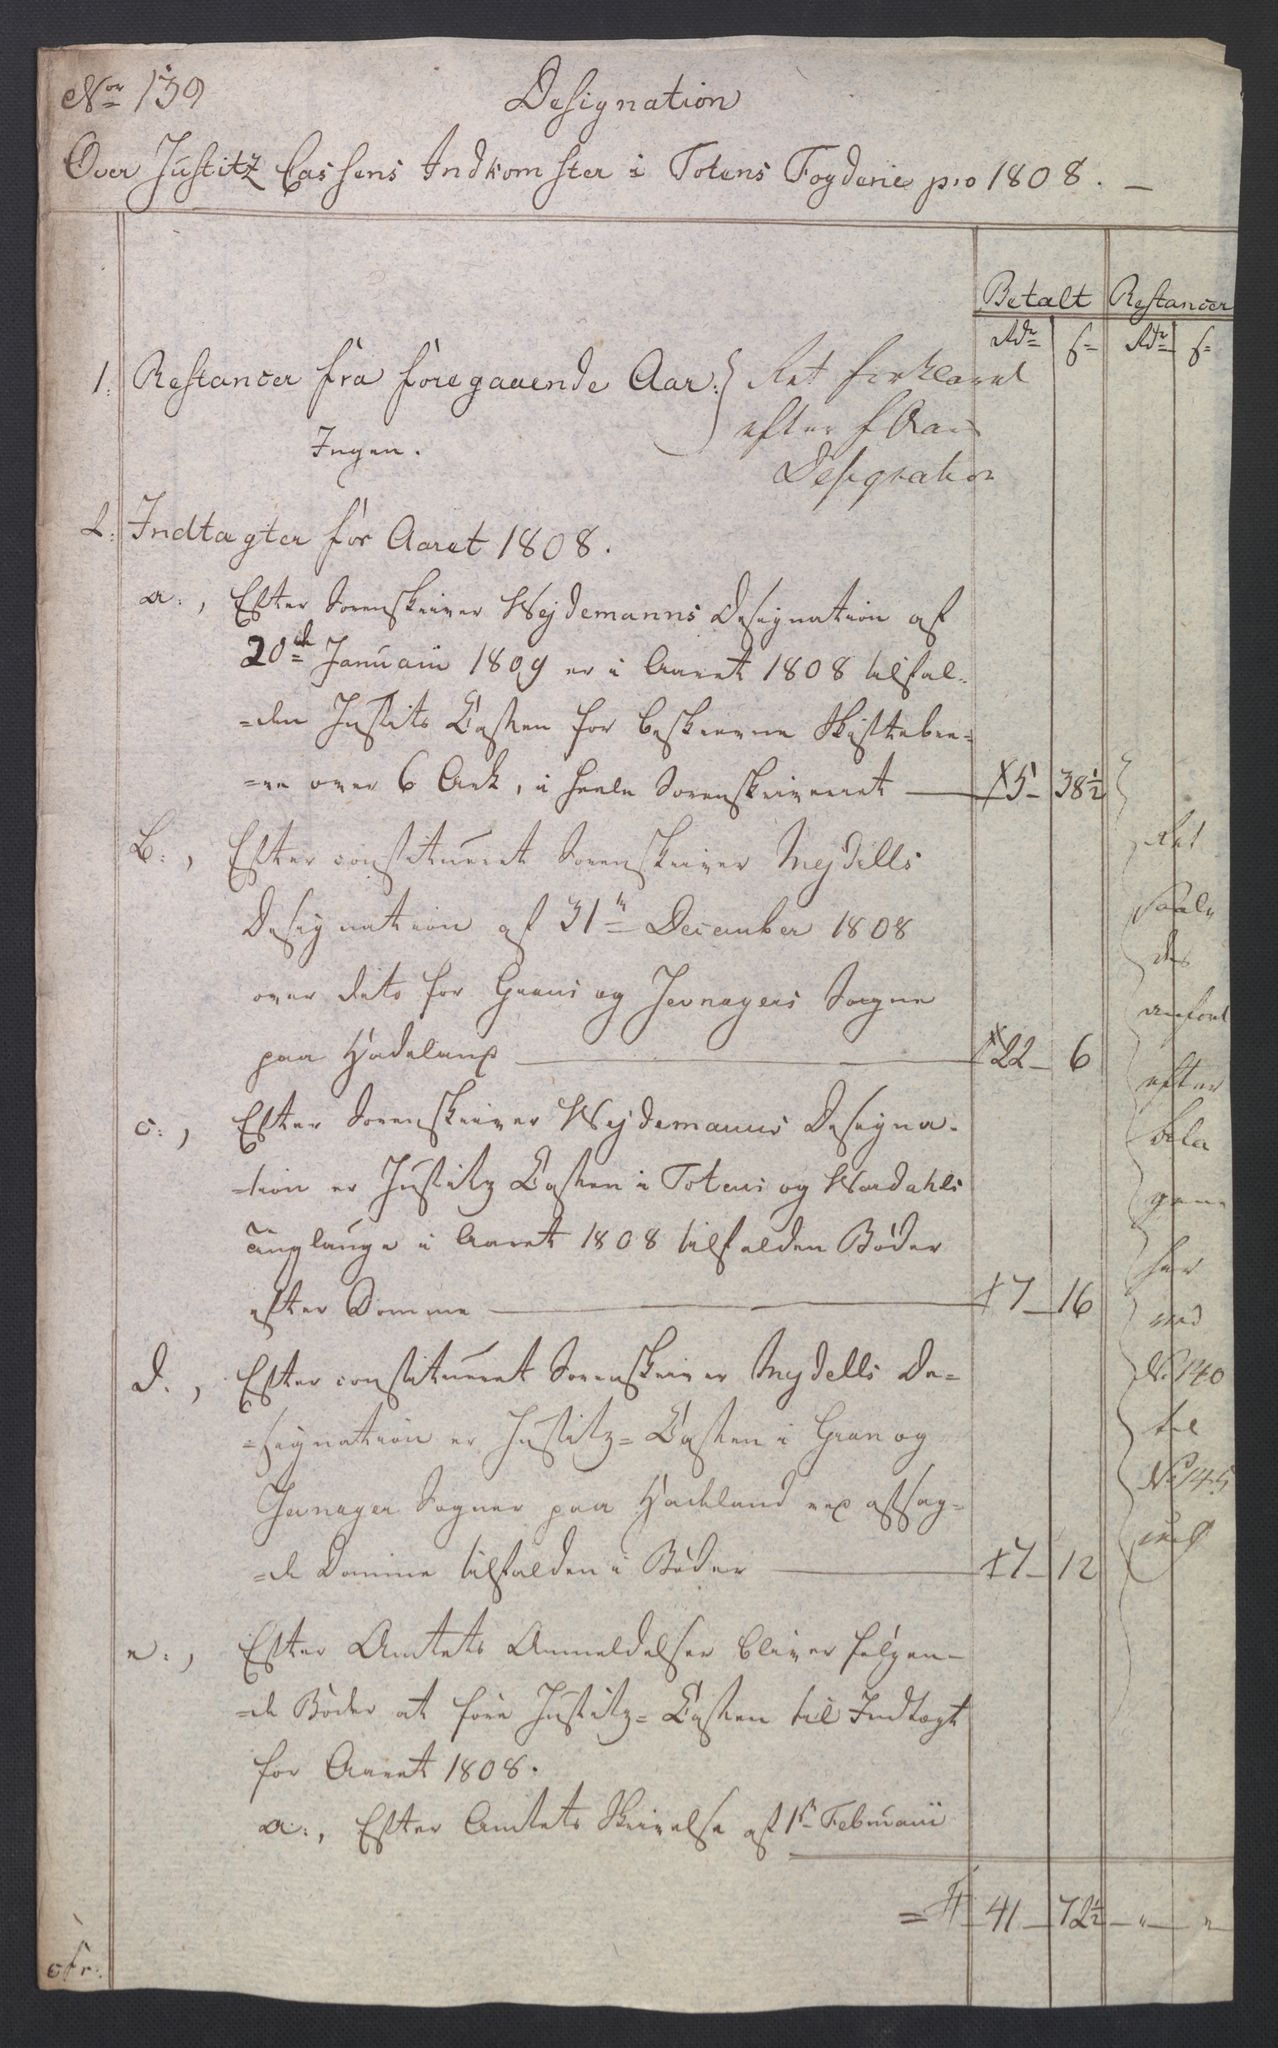 No 139
Designation
Over Justitz Cassens Indkomster i Totens Fogderie pro 1808. —
Betalt Restancer
Rdr s Rdr s
1. Restancer fra foregaaende Aar.
Ingen.
Ret forklaret
efter f Aars
Designation
2. Indtægter for Aaret 1808.
a., Efter Sorenskriver Wejdemanns Designation af
20de Januarii 1809 er i Aaret 1808 tilfal-
-den Justits Cassen for beskrevne Skiftebre-
-ve over 6 Ark, i heele Sorenskriveriet — 5 — 38½
b., Efter constitueret Sorenskriver Mejdells
Designation af 31te December 1808
over dito for Grans og Jevnagers Sogne
paa Hadeland — 22 — 6
c., Efter Sorenskriver Wejdemanns Designa-
-tion er Justitz Cassen i Totens og Wardahls
Tinglauge i Aaret 1808 tilfalden Bøder
efter Domme — 7 — 16
d., Efter constitueret Sorenskriver Mejdells De-
-signation er Justitz-Cassen i Gran og
Jevnager Sogner paa Hadeland ved afsag-
-de Domme tilfalden i Bøder — 7 — 12
e., Efter Amtets Anmeldelser bliver følgen-
-de Bøder at føre Justitz-Cassen til Indtægt
for Aaret 1808.
a., Efter Amtets Skrivelse af 1ste Februarii
= 41 — 72½ — " — "
Ret
saale
des
anført
efter
bila
gene
her
ved
No 140
til
No 145
incl